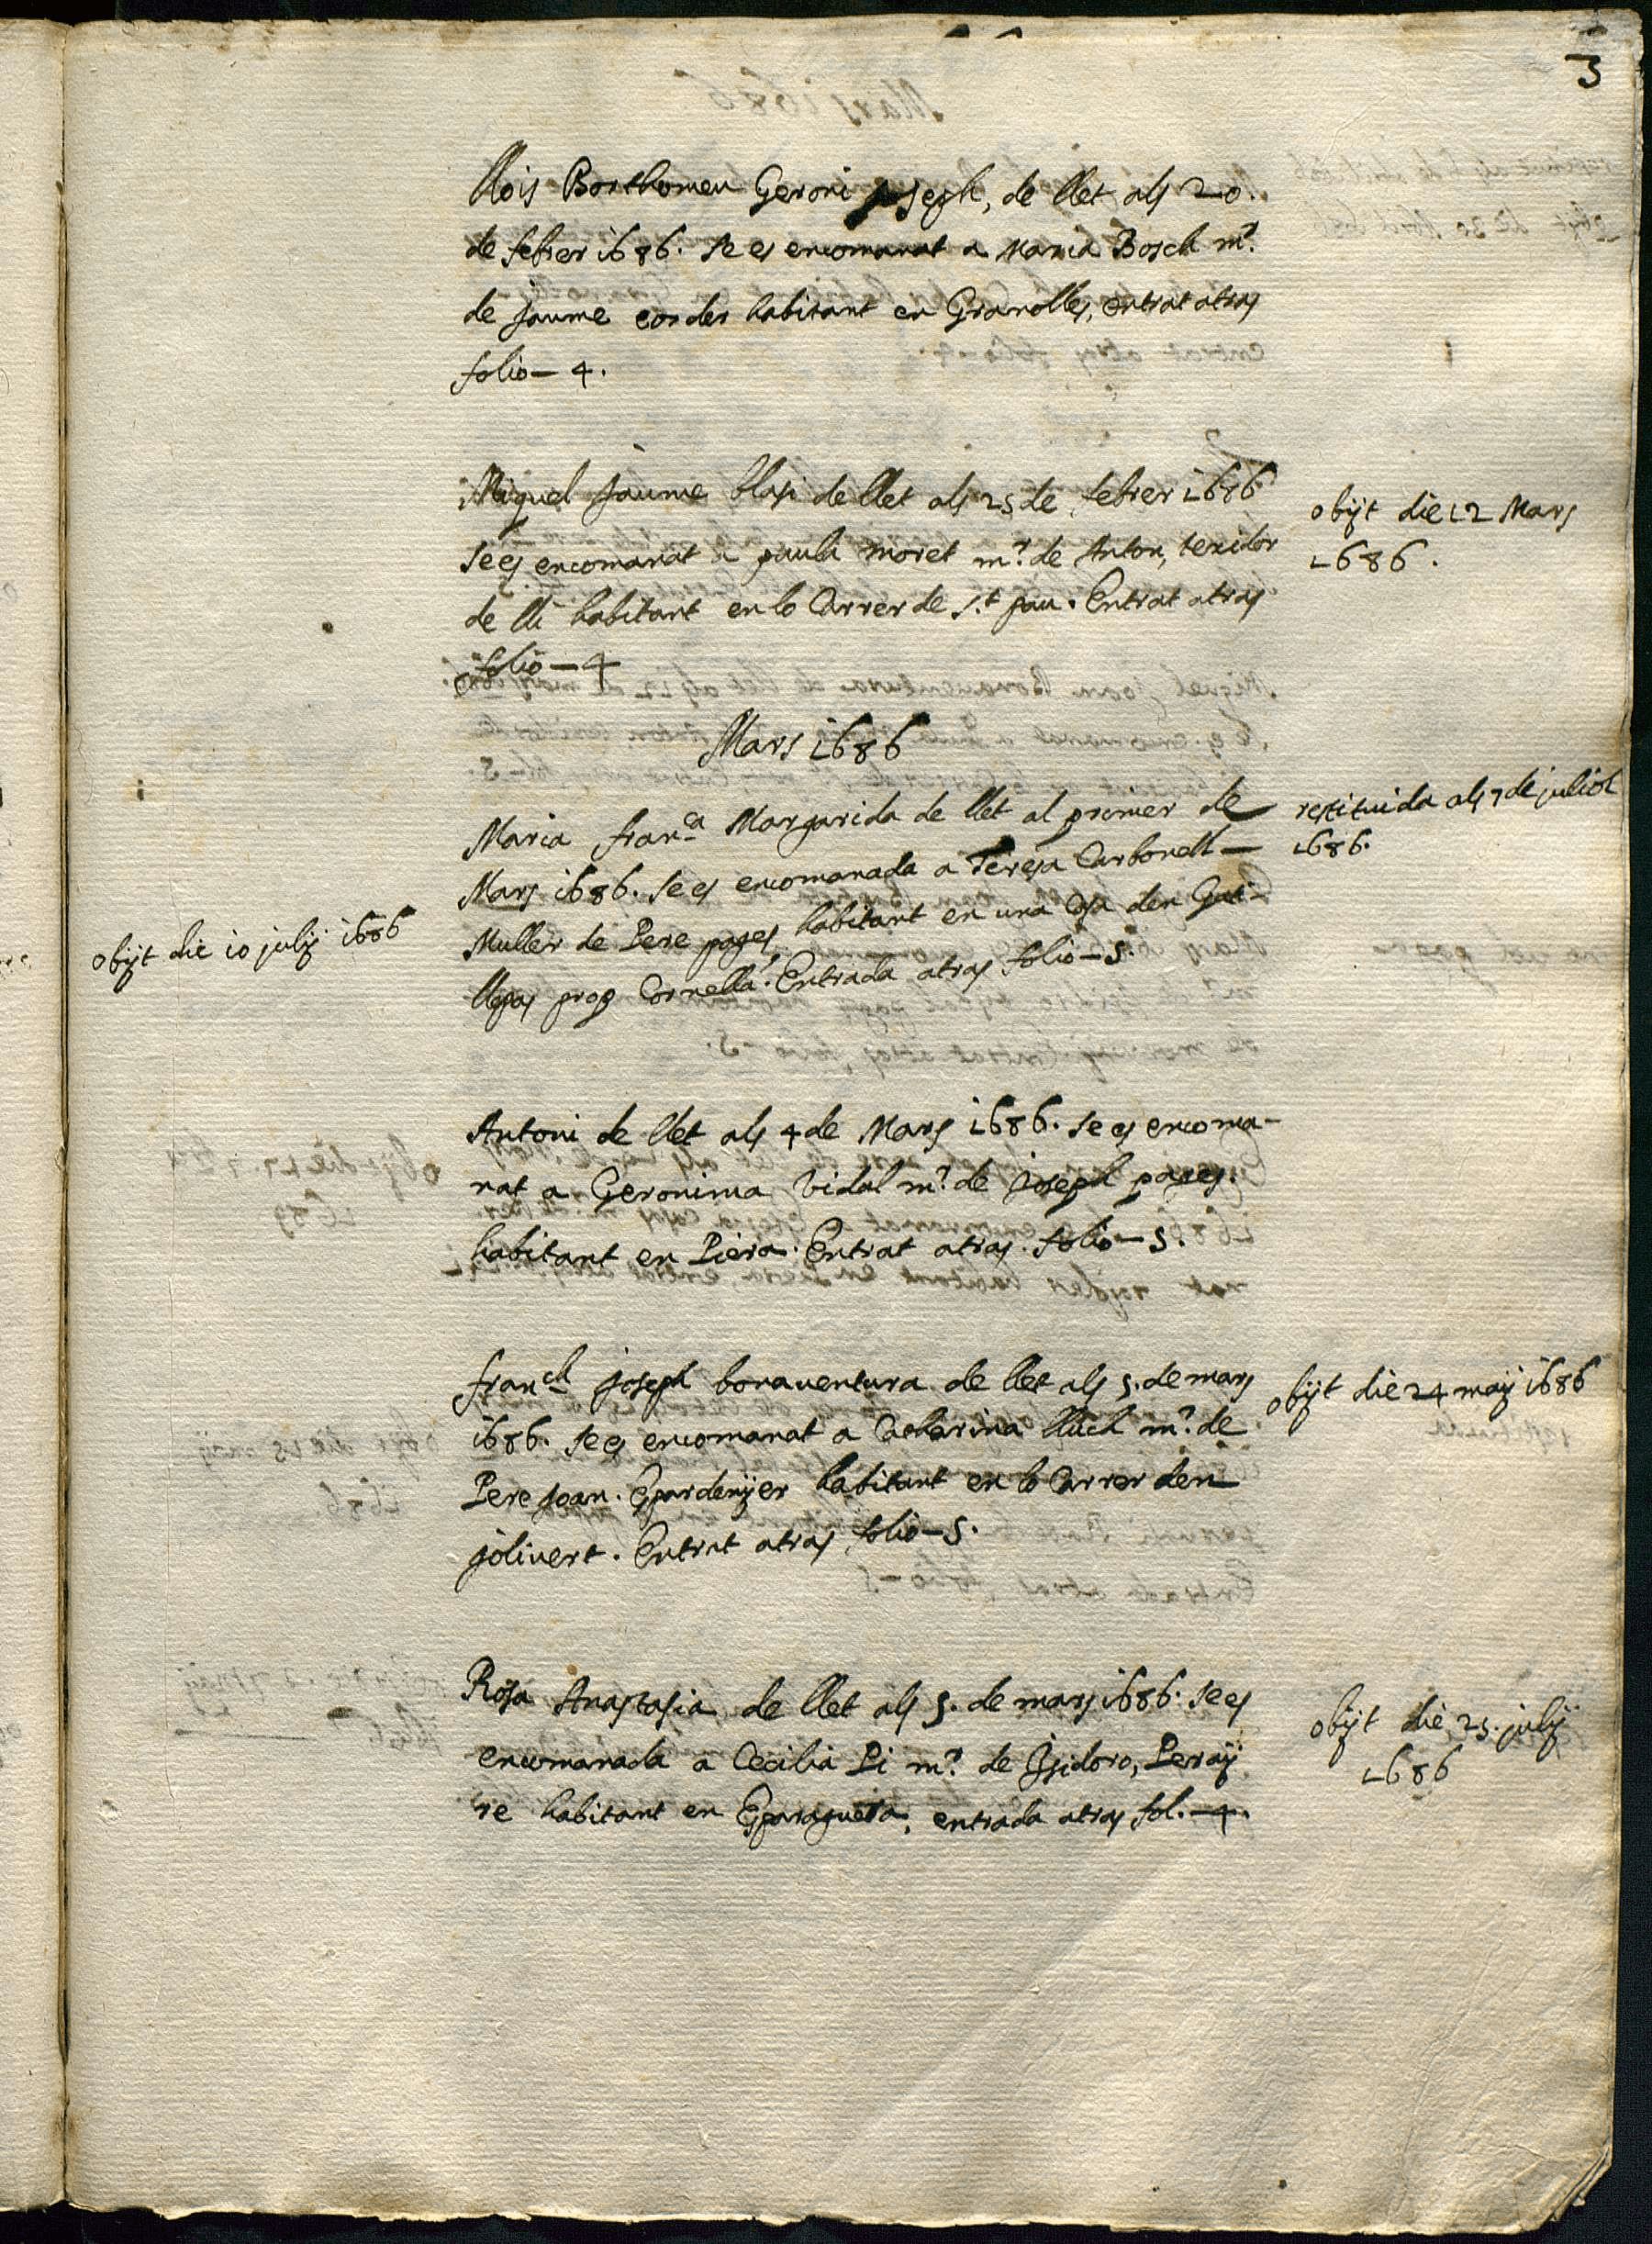 3
Llois Borthomeu Geroni Joseph, de llet als 20.
de febrer 1686. se es encomanat a Maria Bosch m.ʳ
de Jaume corder habitant en Granolles, entrat atras
folio - 4.
Miquel Jaume blasi de llet als 25 de febrer 1686
se es encomanat a paula moret m.ʳ de Anton, texidor
de lli habitant en lo Carrer de S.t pau. Entrat atras
folio - 4
obijt die 12 Mars
1686.
Mars 1686
Maria fran.ca Margarida de llet al primer de
Mars 1686. se es encomanada a Teresa Carbonell -
Muller de Pere pages, habitant en una casa den Guti-
llepas prop Cornella. Entrada atras folio - 5.
restituida als 7 de juliol
1686.
obijt die 10 julij 1686
Antoni de llet als 4 de Mars 1686. se es encoma-
nat a Geronima Vidal m.ʳ de Joseph pages.
habitant en Piera. Entrat atras. folio - 5.
fran.ch joseph bonaventura de llet als 5. de mars
1686. se es encomanat a Catherina lluch m.ʳ de
Pere Joan. Espardenyer habitant en lo Carrer den
jolivert. Entrat atras folio - 5.
obijt die 24 maij 1686
Rosa Anastasia de llet als 5. de mars 1686. se es
encomanada a Cecilia Pi m.ʳ de Isidoro, Peraÿ
re habitant en Esparaguera, entrada atras fol. - 4.
obijt die 25. julij
1686